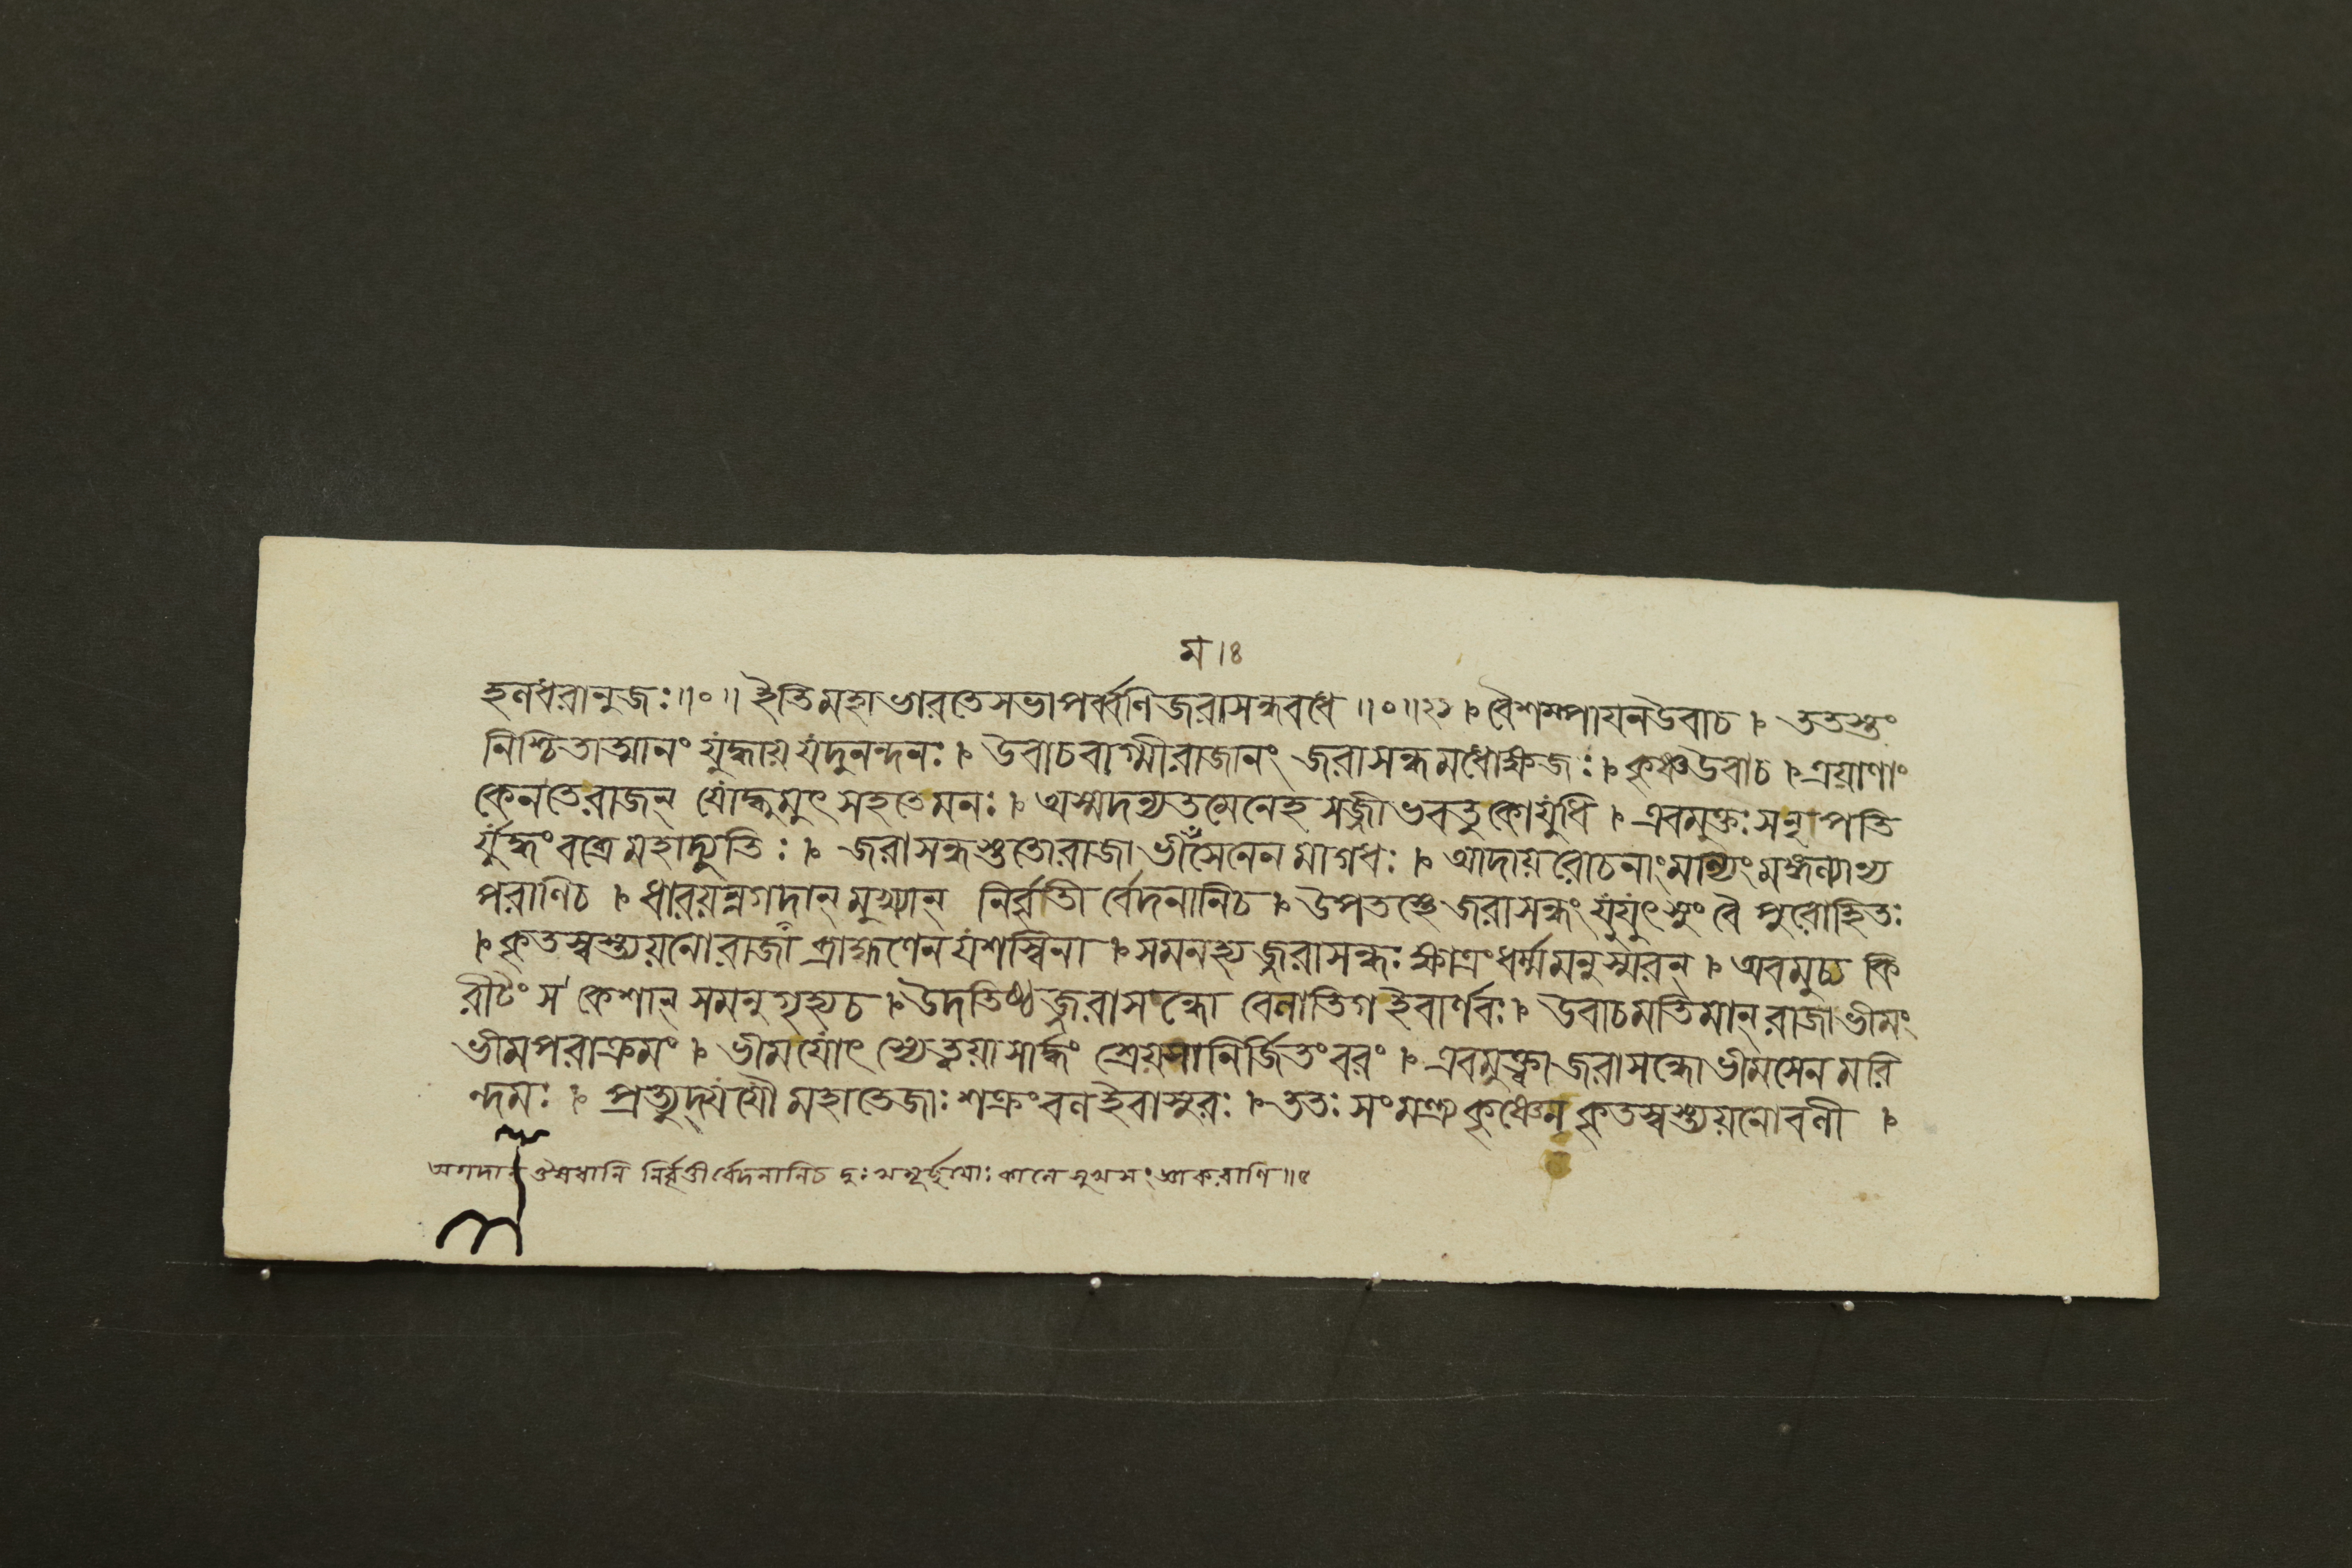 ম।৪
হলধরানুজঃ॥०॥ ইতিমহাভারতেসভাপর্ব্বণিজরাসন্ধবধে॥०॥২১।বৈশম্পায়নউবাচ। ততস্তং
নিশ্চিতাত্মানং যুদ্ধায় যদুনন্দনঃ। উবাচবাগ্মীরাজানং জরাসন্ধমধোক্ষজঃ।কৃষ্ণউবাচ।ত্রয়াণাং
কেনতেরাজন্ যোদ্ধুমুৎসহতেমনঃ। অস্মদন্যতমেনেহ সজ্জীভবতুকোযুধি। এবমুক্তঃসনৃপতি
র্যুদ্ধংবব্রেমহাদ্যুতিঃ। জরাসন্ধস্তুতোরাজা ভীমসেনেন মাগধঃ। আদায়রোচনাংমাল্যংমঙ্গল্যান্য
পরাণিচ।ধারয়ন্নগদান্মুখ্যান্ নির্ব্বৃতী র্বেদনানিচ।উপতস্থেজরাসন্ধং যুযুৎসুং বৈ পুরোহিতঃ
।কৃতস্বস্ত্যয়নোরাজা ব্রাহ্মণেন যশস্বিনা।সমনহ্যজ্জরাসন্ধঃ ক্ষাত্রংধর্ম্মমনুস্মরন্।অবমুচ্য কি
রীটং স কেশান্ সমনুগৃহ্যচ।উদতিষ্ঠজ্জরাসন্ধো বেলাতিগ ইবার্ণবঃ। উবাচমতিমান্রাজাভীমং
ভীমপরাক্রমং। ভীমযোৎস্যেত্বয়াসার্দ্ধং শ্রেয়সানির্জিতংবরং। এবমুক্ত্বা জরাসন্ধোভীমসেন মরি
ন্দমঃ। প্রত্যুদ্যযৌ মহাতেজাঃ শক্রংবল ইবাসুরঃ।ততঃ সংমন্ত্র্যকৃষ্ণেন কৃতস্বস্ত্যয়নোবলী।
অগদান্ ঔষধানি নির্ব্বৃতীর্বেদনানিচ দুঃখমূর্চ্ছয়োঃ কালে সুখসংজ্ঞাকরাণি॥৪